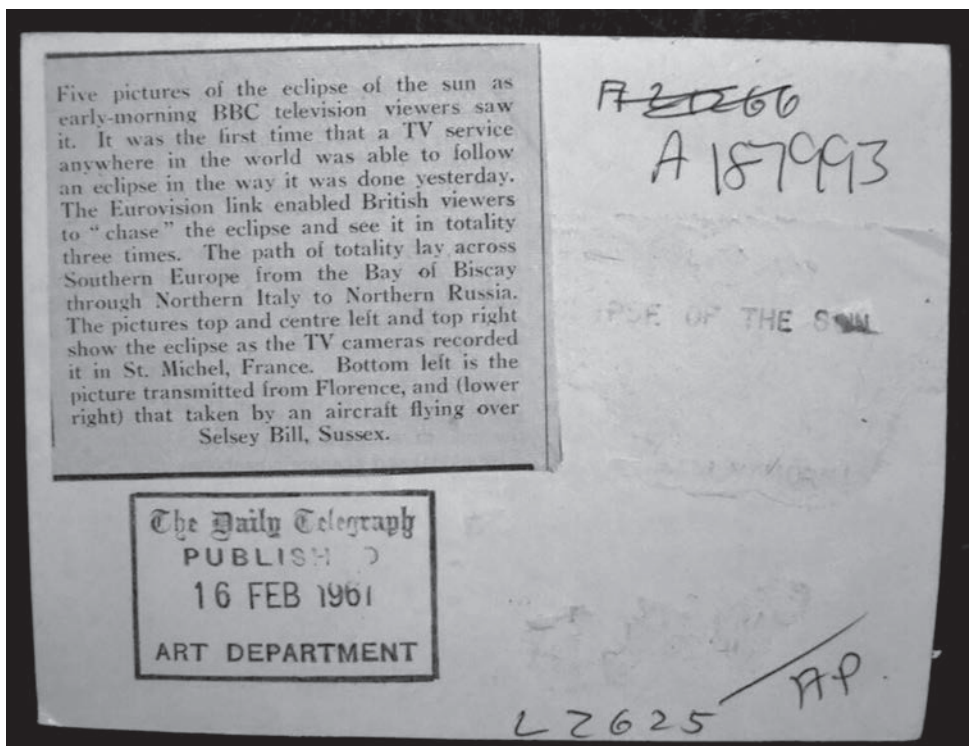 Five pictures of the eclipse of the sun as
early-morning BBC television viewers saw
it. It was the first time that a TV service
anywhere in the world was able to follow
an eclipse in the way it was done yesterday.
The Eurovision link enabled British viewers
to “chase” the eclipse and see it in totality
three times. The path of totality lay across
Southern Europe from the Bay of Biscay
through Northern Italy to Northern Russia.
The pictures top and centre left and top right
show the eclipse as the TV cameras recorded
it in St. Michel, France. Bottom left is the
picture transmitted from Florence, and (lower
right) that taken by an aircraft flying over
Selsey Bill, Sussex.
A187993
OF THE SUN
The Daily Telegraph
PUBLISH D
16 FEB 1961
ART DEPARTMENT
LZ625 / AP.